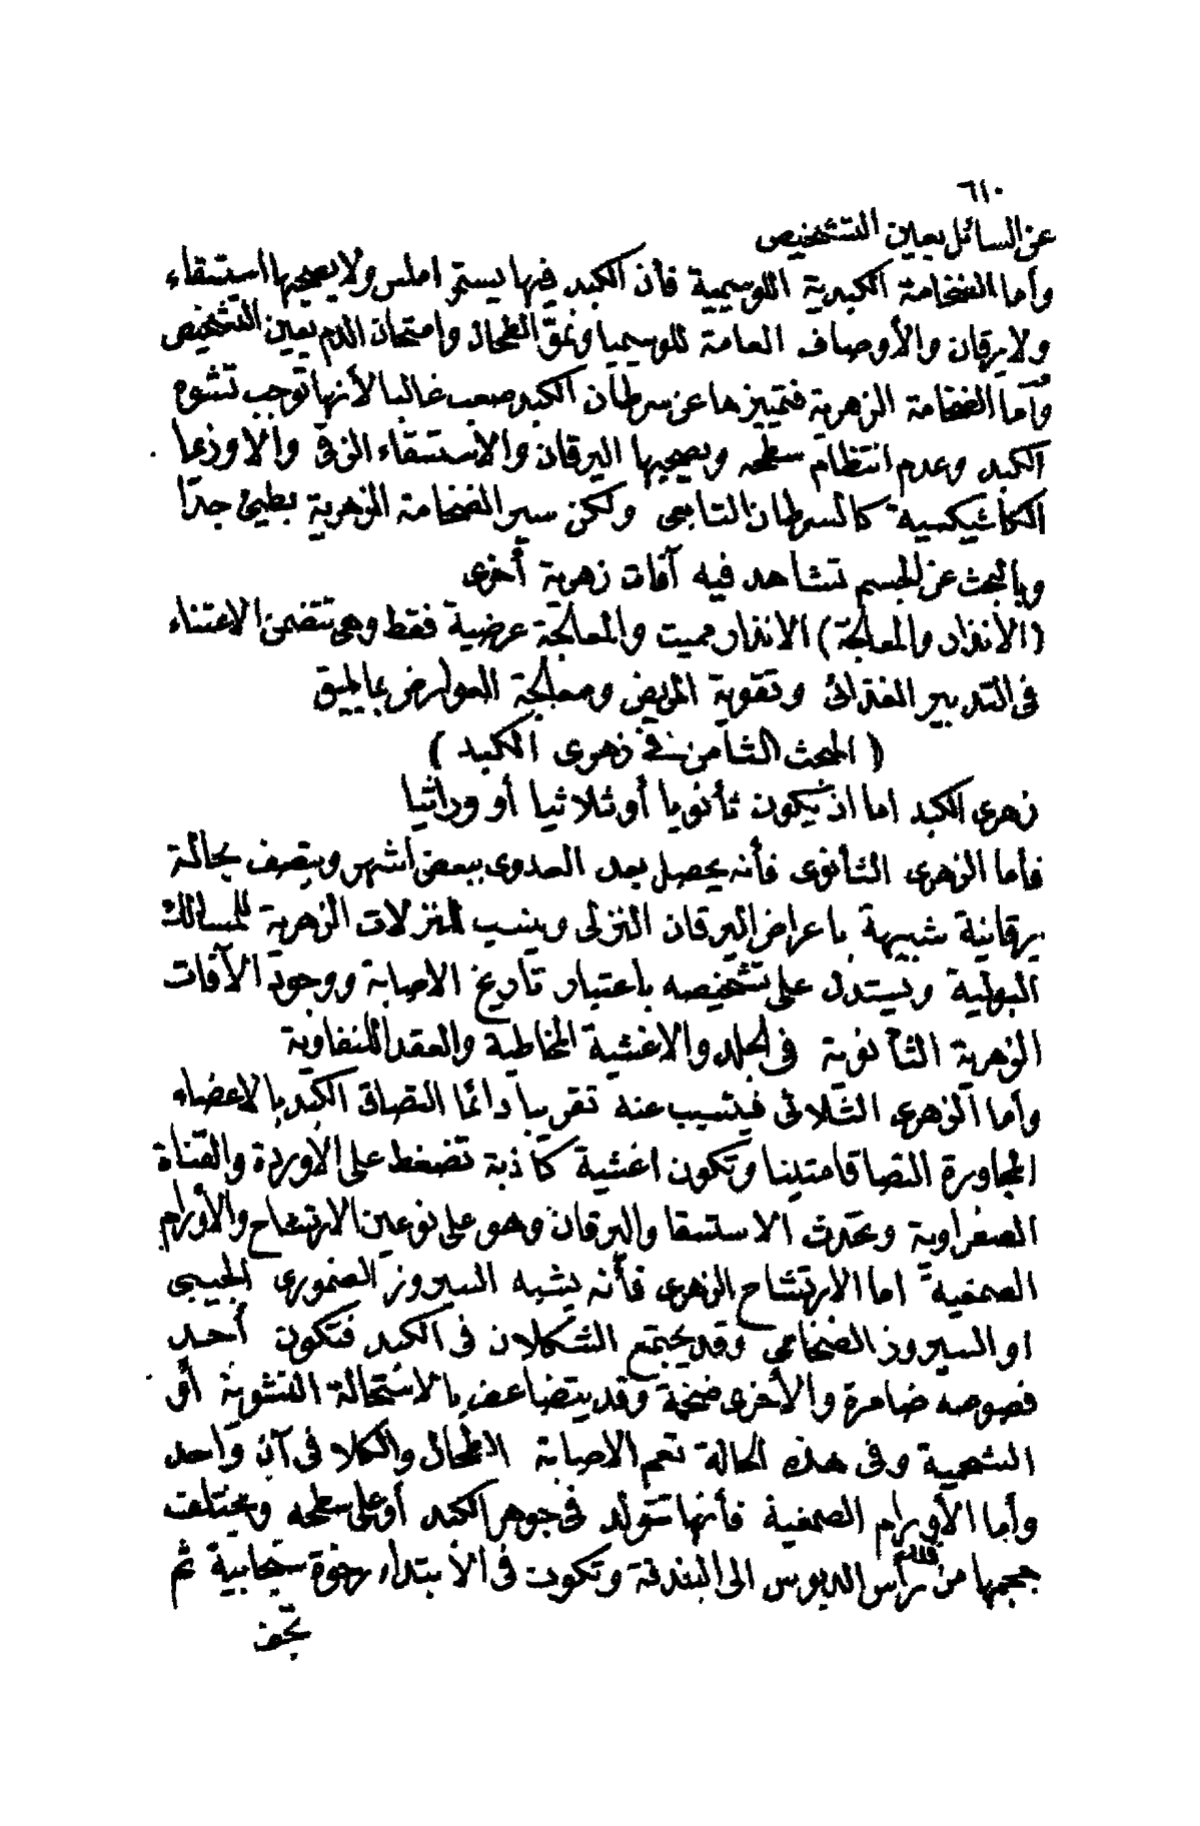 ٦١٠
عن السائل يعين التشخيص
وأما الضخامة الكبدية اللوسيمية فأن الكبد فيها يستمر املس ولا يصحبها استسقاء
ولا يرقان والأوصاف العامة للوسيميا ونمو الطحال وامتحان الدم يعين التشخيص
وأما الضخامة الزهرية فتمييزها عن سرطان الكبد صعب غالبا لأنها توجب تشوه
الكبد وعدم انتظام سطحه ويصحبها اليرقان والاستسقاء الزقى والاوذيما
الكاشيكسيه كالسرطان التابعى ولكن سير الضخامة الزهرية بطيئ جدّا
وبالبحث عن الجسم تشاهد فيه آفات زهرية أخرى
(الأنذار والمعالجة) الانذار مميت والمعالجة عرضية فقط وهى تتضمن الاعتناء
فى التدبير الغذائى وتقوية المريض ومعالجة العوارض بما يليق
(المبحث الثامن فى زهرى الكبد)
زهرى الكبد اما ان يكون ثأنويا أو ثلاثيا أو وراثيا
فأما الزهرى الثأنوى فأنه يحصل بعد العدوى ببعض أشهر ويتصف بحالة
يرقانية شبيهة بأعراض اليرقان النزلى وينسب للنزلات الزهرية للمسالك
البولية ويستدل على تشخيصه باعتبار تأريخ الاصابة ووجود الآفات
الزهرية الثأنوية فى الجلد والاغشية المخاطية والعقد اللنفاوية
وأما الزهرى الثلاثى فيتسبب عنه تقريبا دائما التصاق الكبد بالاعضاء
المجاورة التصاقا متينا وتكون اغشية كاذبة تضغط على الأوردة والقناة
الصفراوية وتحدث الاستسقا واليرقان وهو على نوعين الارتشاح والأورام
الصمغية اما الارتشاح الزهرى فأنه يشبه السيروز الضمورى الحبيبى
او السيروز الضخامى وقد يجتمع الشكلان فى الكبد فتكون أحد
فصوصه ضامرة والأخرى ضخمة وقد يتضاعف بالاستحالة النشوية أو
الشحمية وفى هذه الحالة تعم الاصابة الطحال والكلا فى آن واحد
وأما الأورام الصمغية فأنها تتولد فى جوهر الكبد أو على سطحه ويختلف
حجمها من قدر رأس الدبوس الى البندقة وتكون فى الأبتداء رخوة سنجابية ثم
تجف